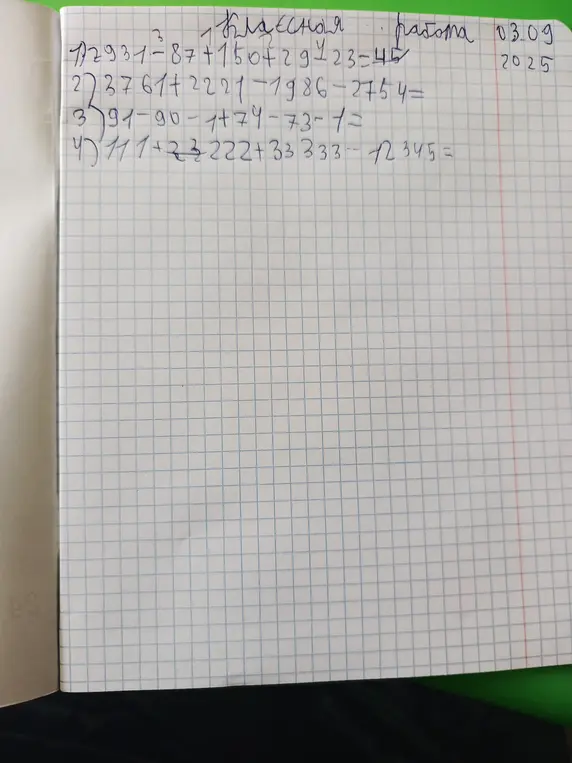 Классная работа 03.09
2025
1) 2931 - 87 + 150 + 29 - 23 = 45
2) 3761 + 2221 - 1986 - 2754 =
3) 91 - 90 - 1 + 74 - 73 - 1 =
4) 111 + 222 + 33333 - 12345 =